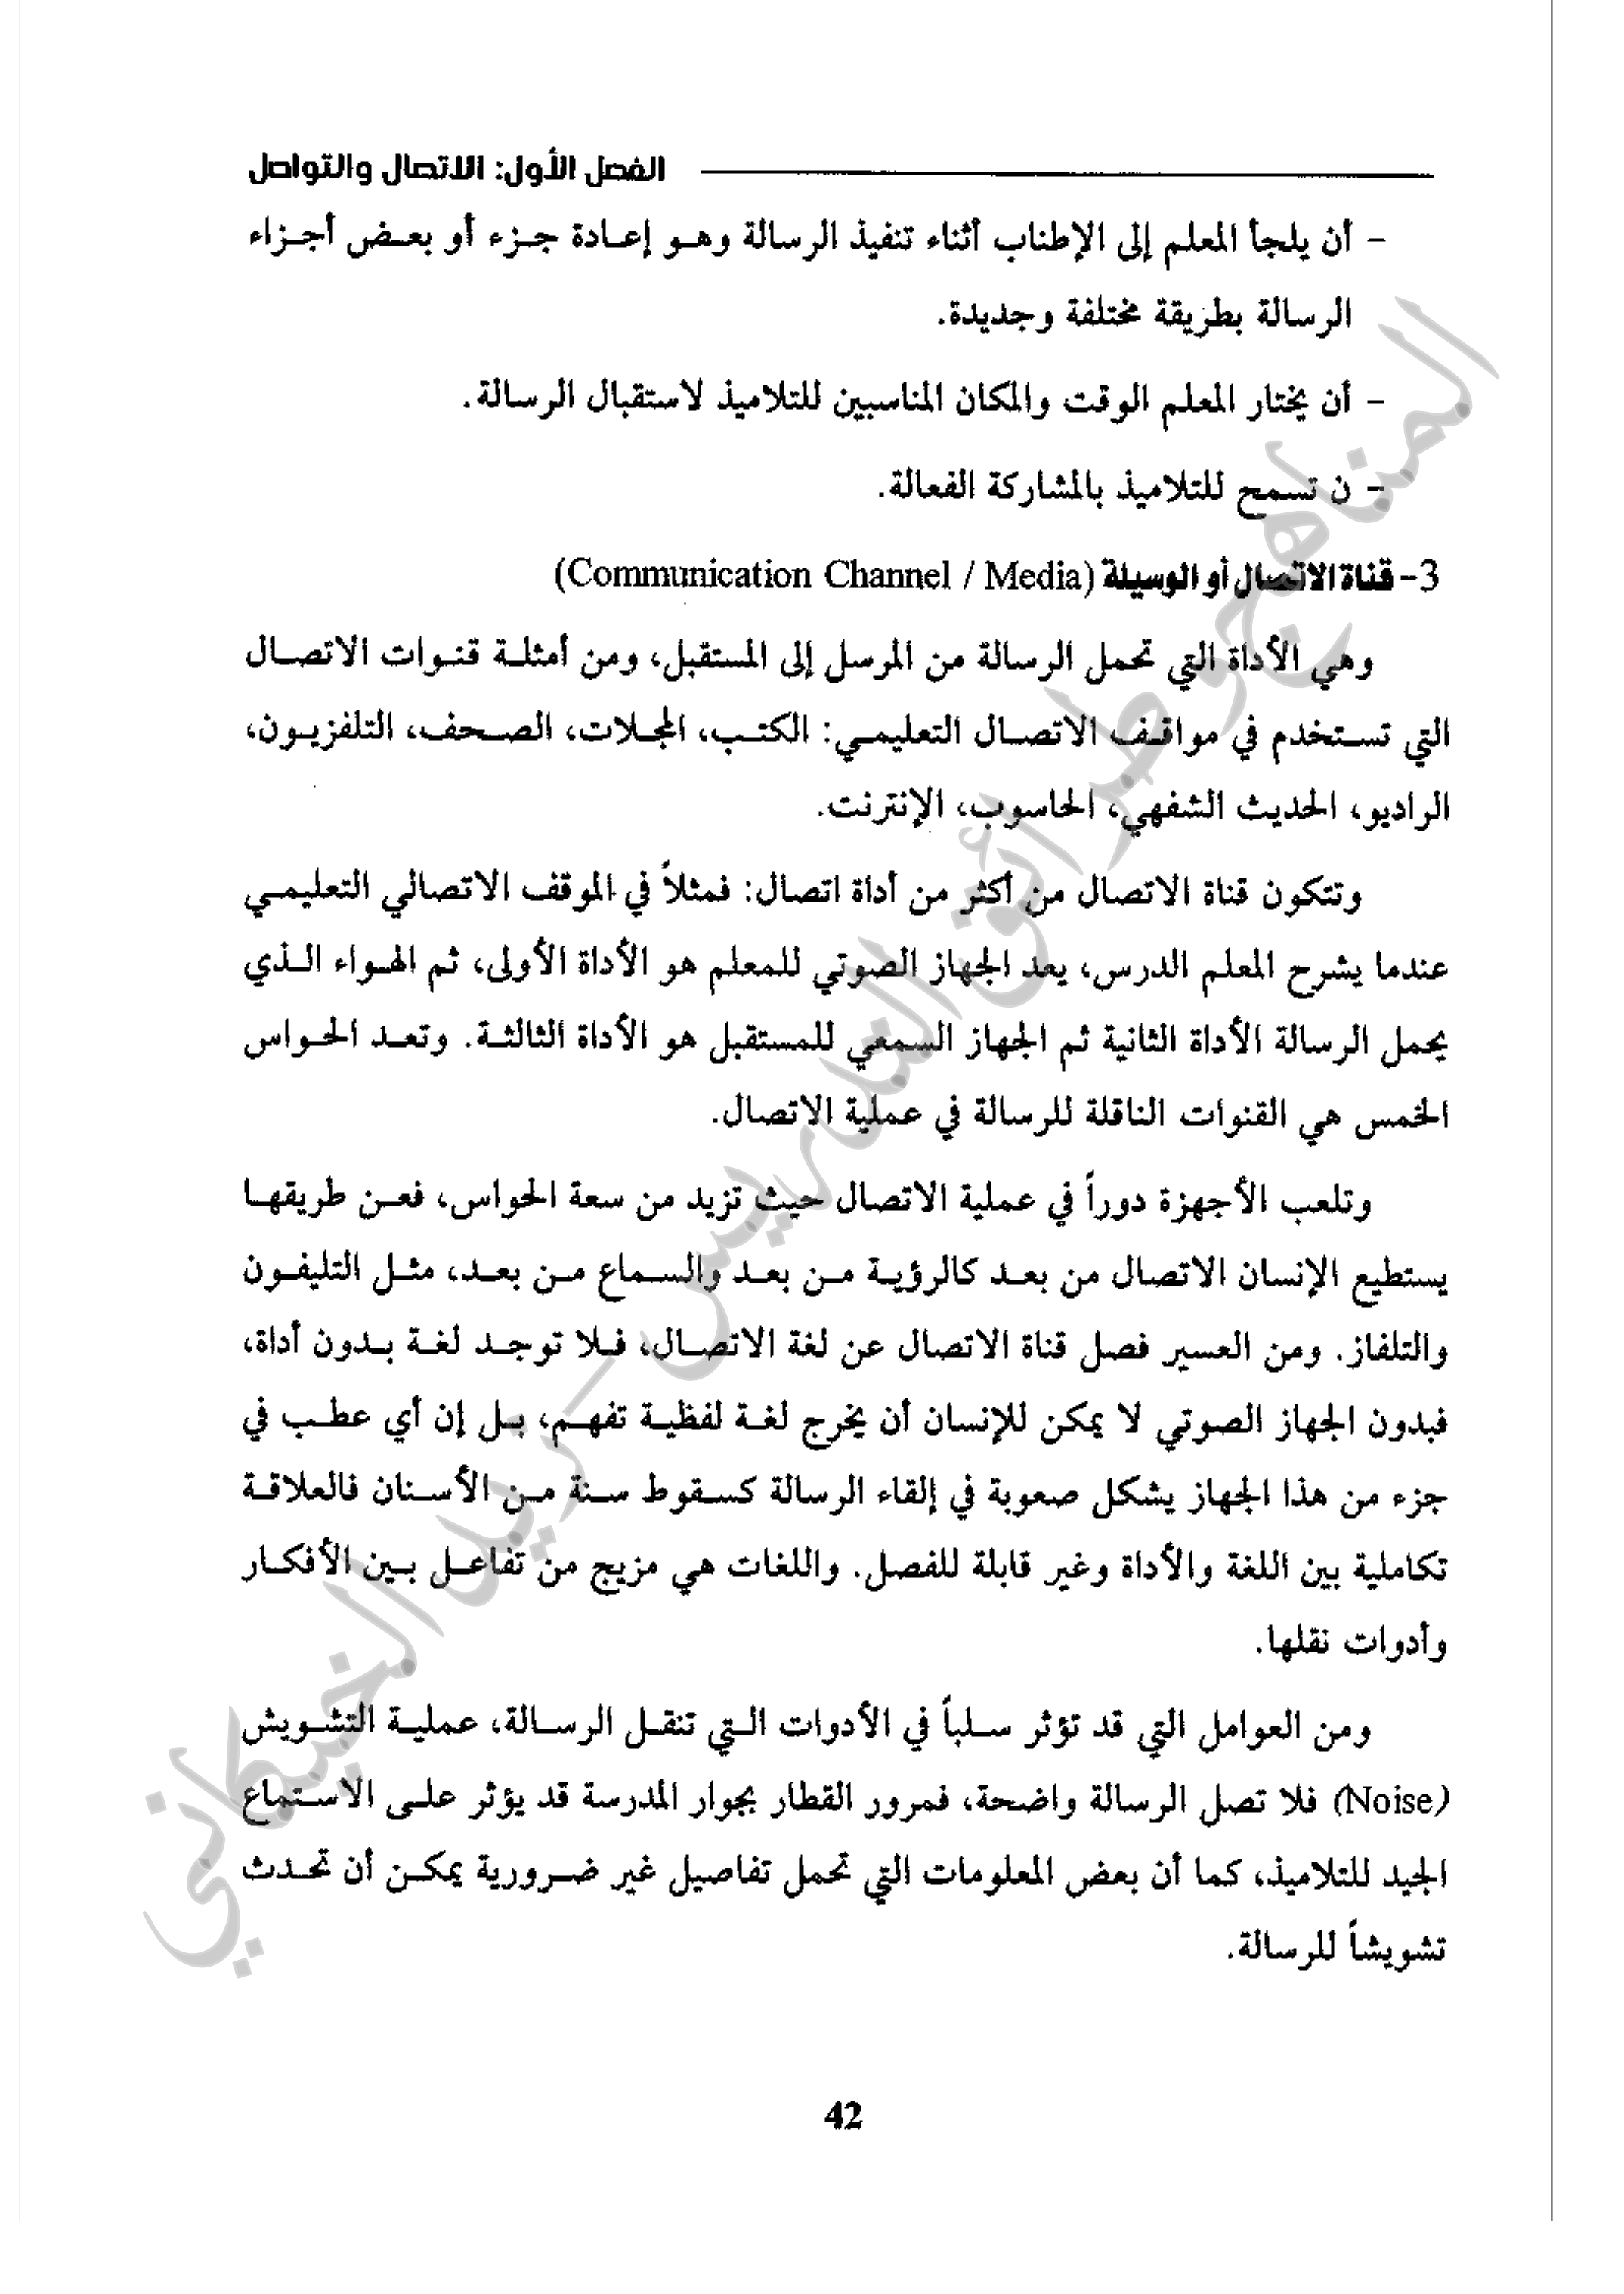 الفصل الأول: الاتصال والتواصل
- أن يلجأ المعلم إلى الإطناب أثناء تنفيذ الرسالة وهو إعادة جزء أو بعض أجزاء
الرسالة بطريقة مختلفة وجديدة.
- أن يختار المعلم الوقت والمكان المناسبين للتلاميذ لاستقبال الرسالة.
- ن تسمح للتلاميذ بالمشاركة الفعالة.
3- قناة الاتصال أو الوسيلة (Communication Channel / Media)
وهي الأداة التي تحمل الرسالة من المرسل إلى المستقبل، ومن أمثلة قنوات الاتصال
التي تستخدم في مواقف الاتصال التعليمي: الكتب، المجلات، الصحف، التلفزيون،
الراديو، الحديث الشفهي، الحاسوب، الإنترنت.
وتتكون قناة الاتصال من أكثر من أداة اتصال: فمثلاً في الموقف الاتصالي التعليمي
عندما يشرح المعلم الدرس، يعد الجهاز الصوتي للمعلم هو الأداة الأولى، ثم الهواء الذي
يحمل الرسالة الأداة الثانية ثم الجهاز السمعي للمستقبل هو الأداة الثالثة. وتعد الحواس
الخمس هي القنوات الناقلة للرسالة في عملية الاتصال.
وتلعب الأجهزة دوراً في عملية الاتصال حيث تزيد من سعة الحواس، فعن طريقها
يستطيع الإنسان الاتصال من بعد كالرؤية من بعد والسماع من بعد، مثل التليفون
والتلفاز. ومن العسير فصل قناة الاتصال عن لغة الاتصال، فلا توجد لغة بدون أداة،
فبدون الجهاز الصوتي لا يمكن للإنسان أن يخرج لغة لفظية تفهم، بل إن أي عطب في
جزء من هذا الجهاز يشكل صعوبة في إلقاء الرسالة كسقوط سنة من الأسنان فالعلاقة
تكاملية بين اللغة والأداة وغير قابلة للفصل. واللغات هي مزيج من تفاعل بين الأفكار
وأدوات نقلها.
ومن العوامل التي قد تؤثر سلباً في الأدوات التي تنقل الرسالة، عملية التشويش
(Noise) فلا تصل الرسالة واضحة، فمرور القطار بجوار المدرسة قد يؤثر على الاستماع
الجيد للتلاميذ، كما أن بعض المعلومات التي تحمل تفاصيل غير ضرورية يمكن أن تحدث
تشويشاً للرسالة.
42
المناهج وطرائق التدريس - زيد الخيكاني